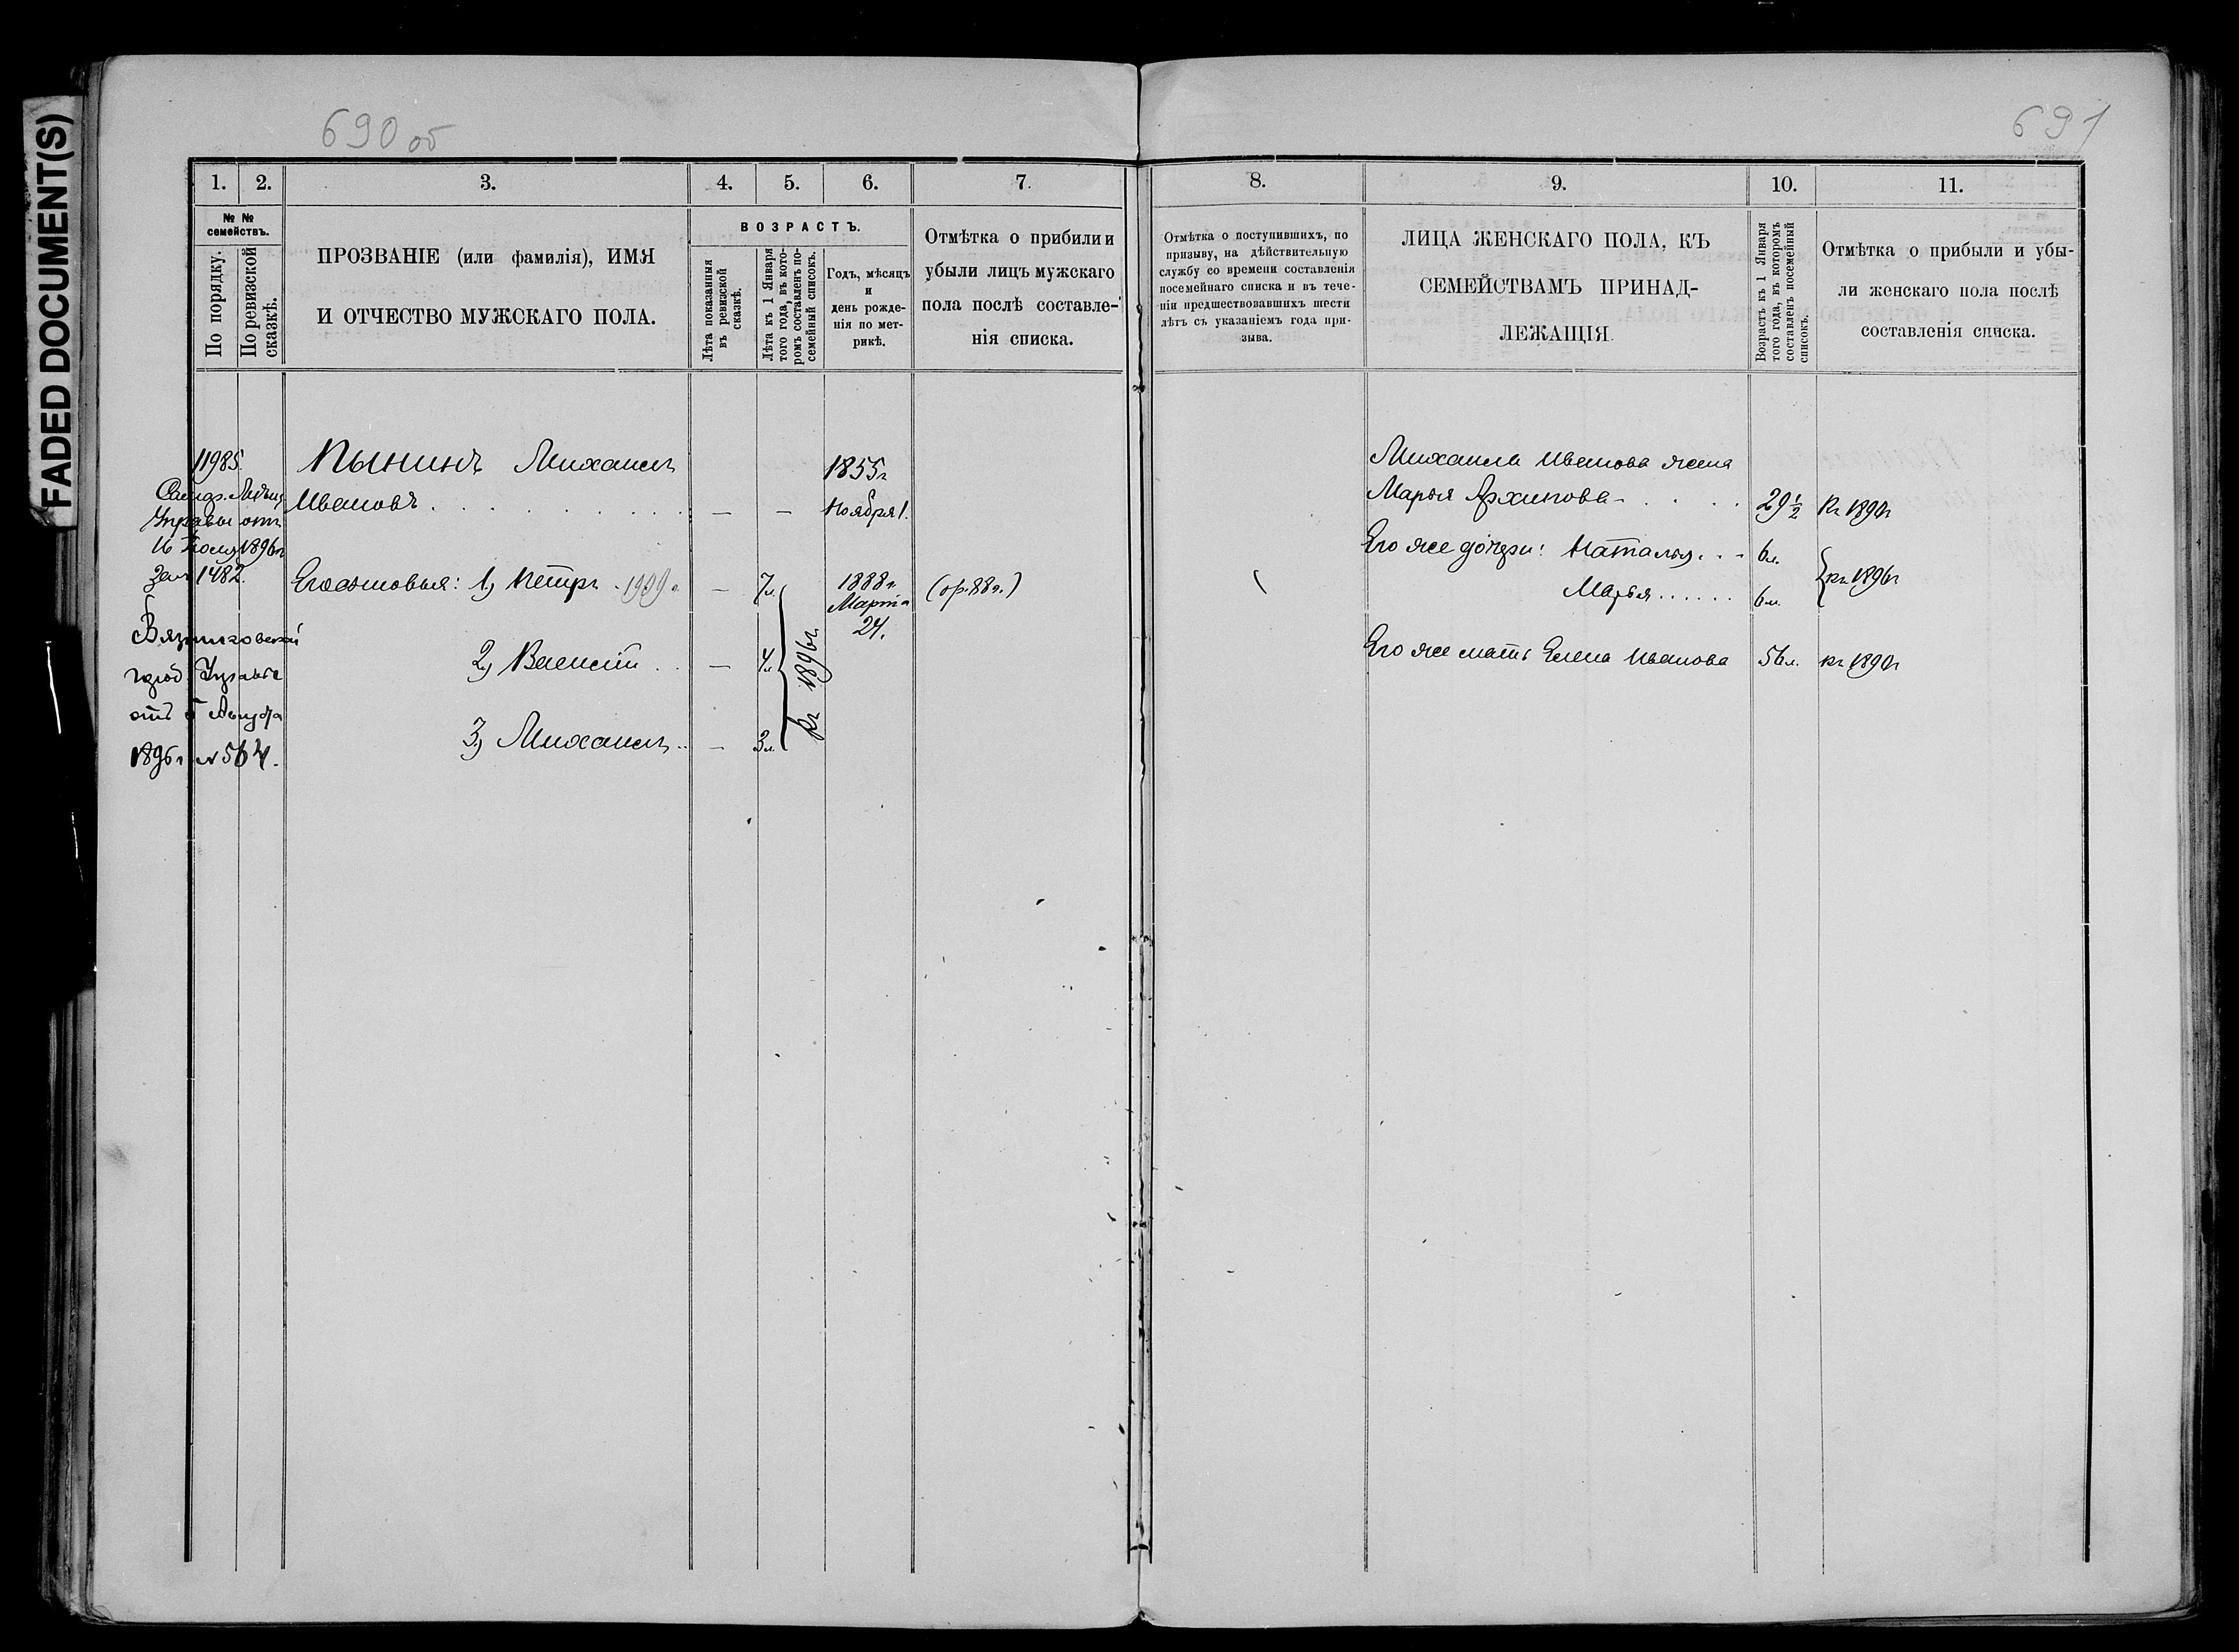 FADED DOCUMENT(S)
690 об
691
1. 2. 3. 4. 5. 6. 7.
№ № семействъ.
По порядку.
По ревизской сказкѣ.
ПРОЗВАНІЕ (или фамилія), ИМЯ
И ОТЧЕСТВО МУЖСКАГО ПОЛА.
ВОЗРАСТЪ.
Лѣта показанныя
въ ревизской
сказкѣ.
Лѣта къ 1 Января
того года, въ кото-
ромъ составленъ по-
семейный списокъ.
Годъ, мѣсяцъ
и
день рожде-
нія по мет-
рикѣ.
Отмѣтка о прибыли и
убыли лицъ мужскаго
пола послѣ составле-
нія списка.
8. 9. 10. 11.
Отмѣтка о поступившихъ, по
призыву, на дѣйствительную
службу со времени составленія
посемейнаго списка и въ тече-
ніи предшествовавшихъ шести
лѣтъ съ указаніемъ года при-
зыва.
ЛИЦА ЖЕНСКАГО ПОЛА, КЪ
СЕМЕЙСТВАМЪ ПРИНАД-
ЛЕЖАЩІЯ.
Возрастъ къ 1 Января
того года, въ которомъ
составленъ посемейный
списокъ.
Отмѣтка о прибыли и убы-
ли женскаго пола послѣ
составленія списка.
11985
Управы отъ
16 1896г
за № 1482.
Вязниковской
город. Управы
отъ 5 Августа
1896г № 564.
Пынинъ Михаилъ 1855г
Ивановъ . . . — — Ноября 1.
Его сыновья: 1) Петръ . 1909г — 7л. 1888г. (ор. 88г.)
Марта
24.
2) Василій . . — 4л.
3) Михаилъ . . — 3л.
Къ 1896г.
Михаила Иванова жена
Марья Архипова . . . 29½ Къ 1890г
Его же дочери: Наталья . . 6л.
Марья . . . . . . 6м.
къ 1896г
Его же мать Елена Иванова 56л. къ 1890г